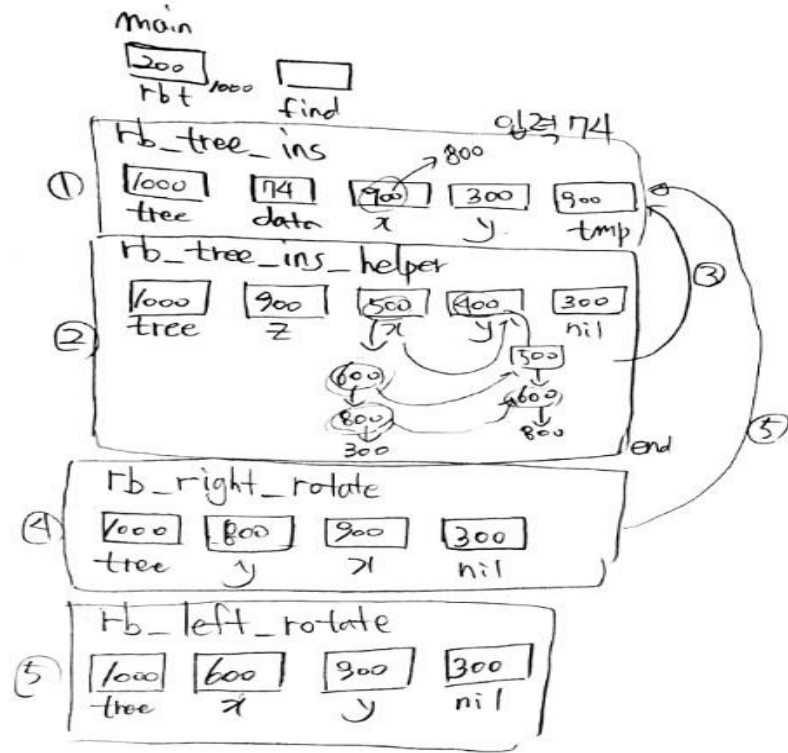 main
200
rbt 1000 find
rb_tree_ins 입력 74
① 1000 74 900 → 800 300 900
tree data x y tmp
rb_tree_ins_helper
② 1000 900 500 400 300
tree z x y nil
③
500
600 600
800 800
300
end
⑤
rb_right_rotate
④ 1000 800 900 300
tree y x nil
rb_left_rotate
⑤ 1000 600 900 300
tree x y nil